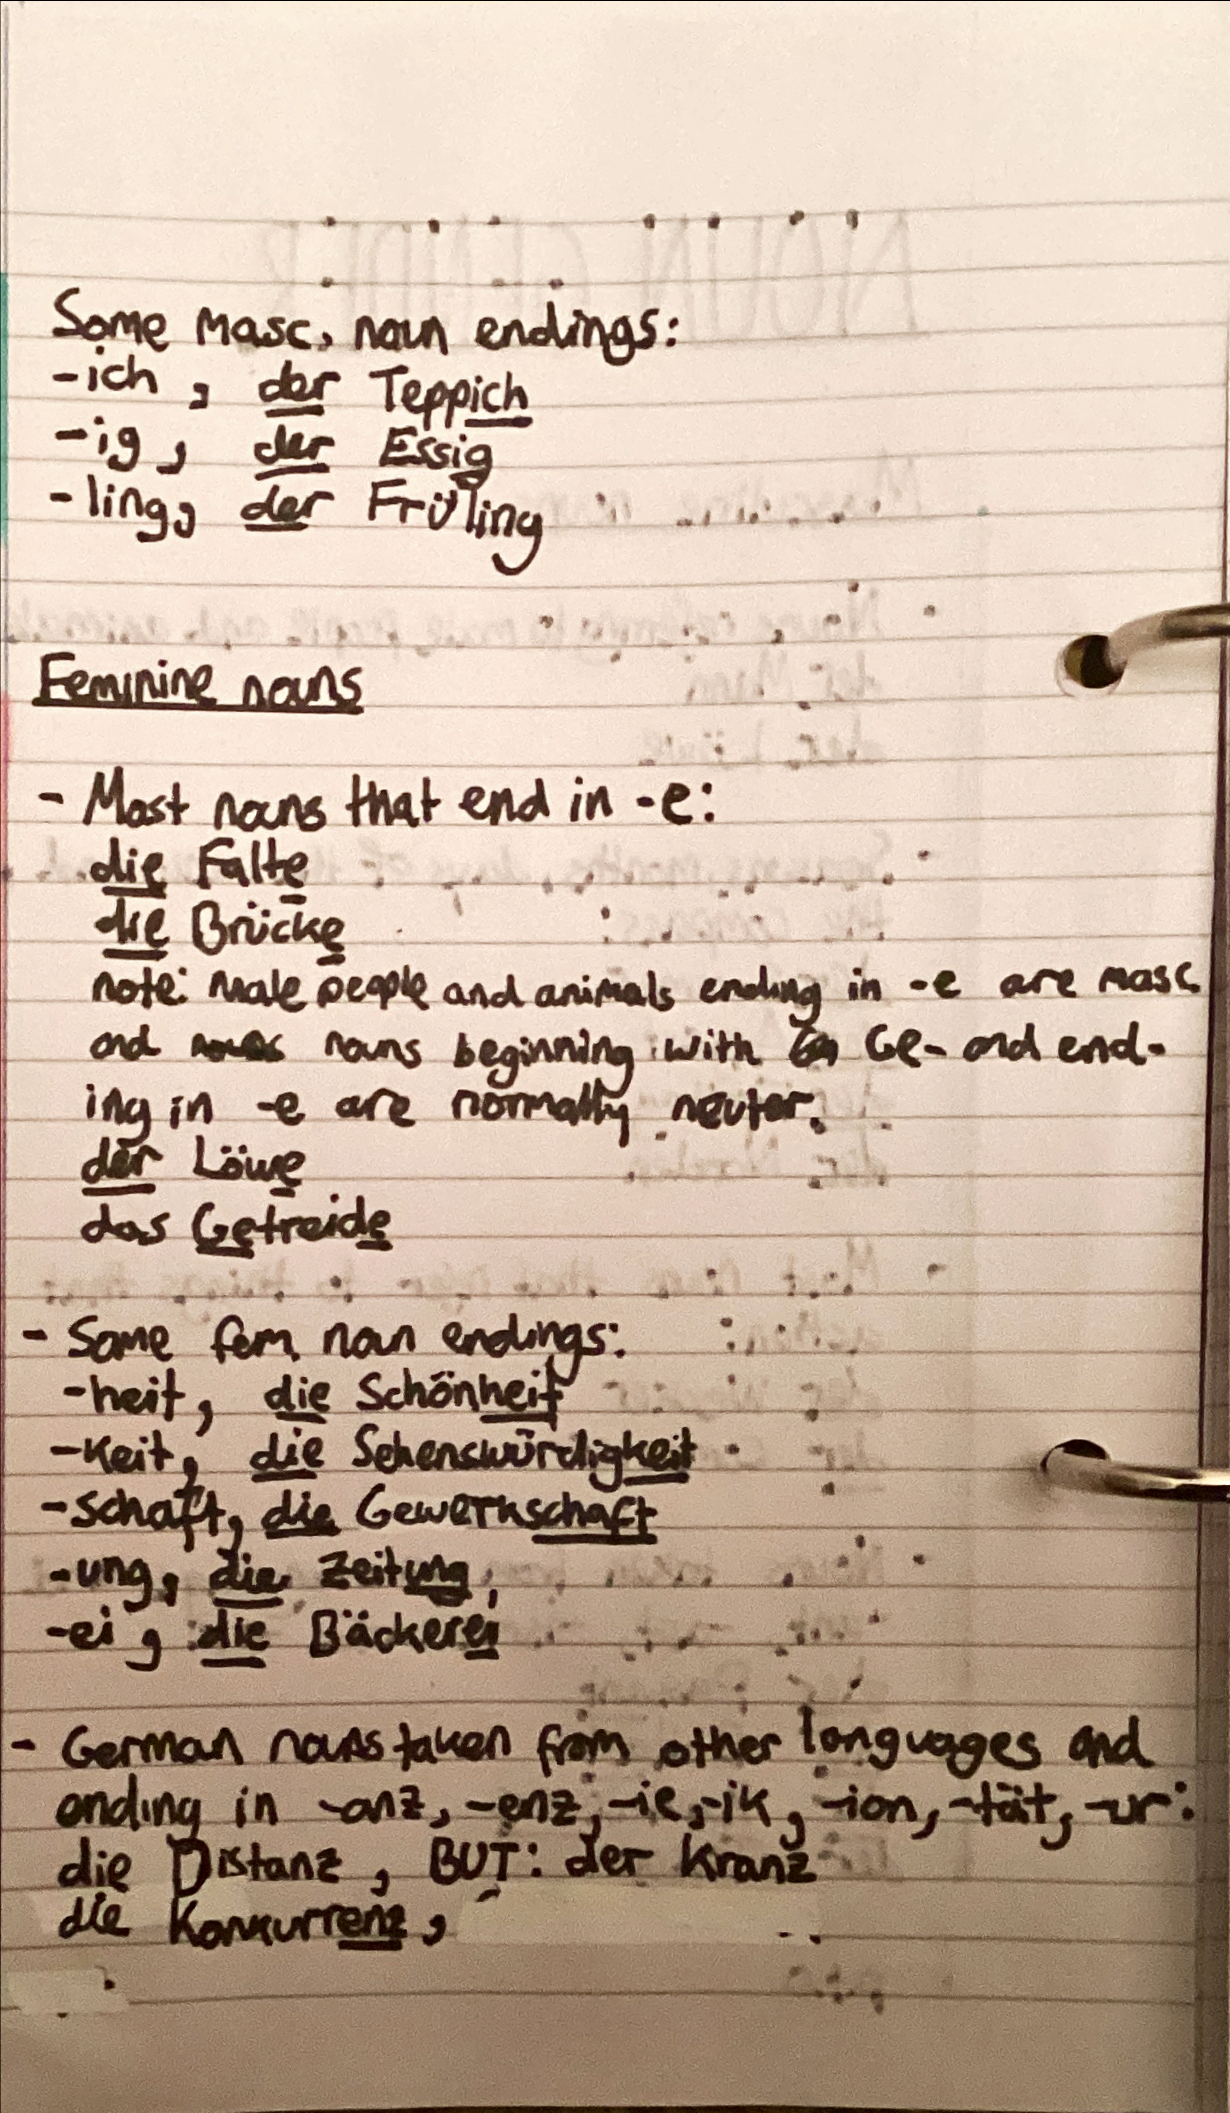 Some masc. noun endings:
-ich, der Teppich
-ig, der Essig
-ling, der Früling
Feminine nouns
- Most nouns that end in -e:
die Falte
die Brücke
note: male people and animals ending in -e are masc
and nouns beginning with Ge- and end-
ing in -e are normally neuter.
der Löwe
das Getreide
- Some fem. noun endings:
-heit, die Schönheit
-keit, die Sehenswürdigkeit
-schaft, die Gewerkschaft
-ung, die Zeitung,
-ei, die Bäckerei
- German nouns taken from other languages and
ending in -anz, -enz, -ie, -ik, -ion, -tät, -ur:
die Distanz, BUT: der Kranz
die Konkurrenz,